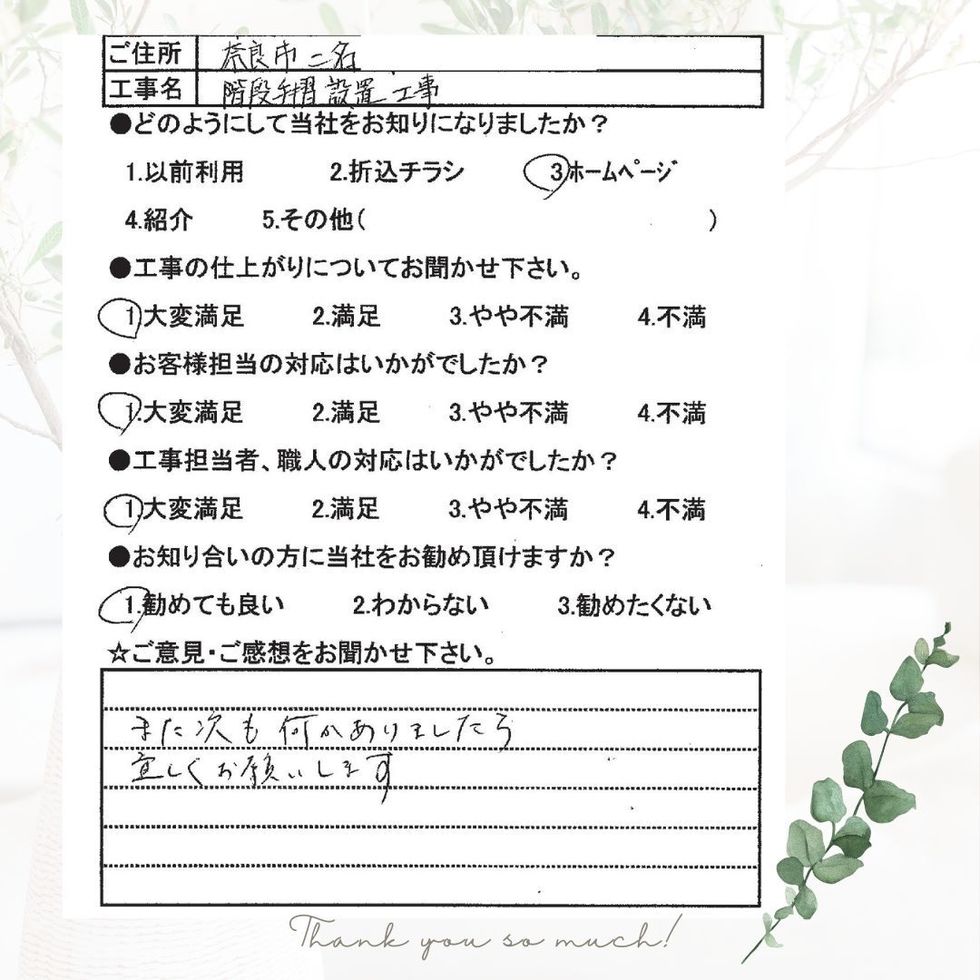 ご住所 奈良市二名
工事名 階段手摺設置工事
●どのようにして当社をお知りになりましたか？
1.以前利用 2.折込チラシ 3ホームページ
4.紹介 5.その他( )
●工事の仕上がりについてお聞かせ下さい。
1.大変満足 2.満足 3.やや不満 4.不満
●お客様担当の対応はいかがでしたか？
1.大変満足 2.満足 3.やや不満 4.不満
●工事担当者、職人の対応はいかがでしたか？
1.大変満足 2.満足 3.やや不満 4.不満
●お知り合いの方に当社をお勧め頂けますか？
1.勧めても良い 2.わからない 3.勧めたくない
☆ご意見・ご感想をお聞かせ下さい。
また次も何かありましたら
宜しくお願いします
Thank you so much!